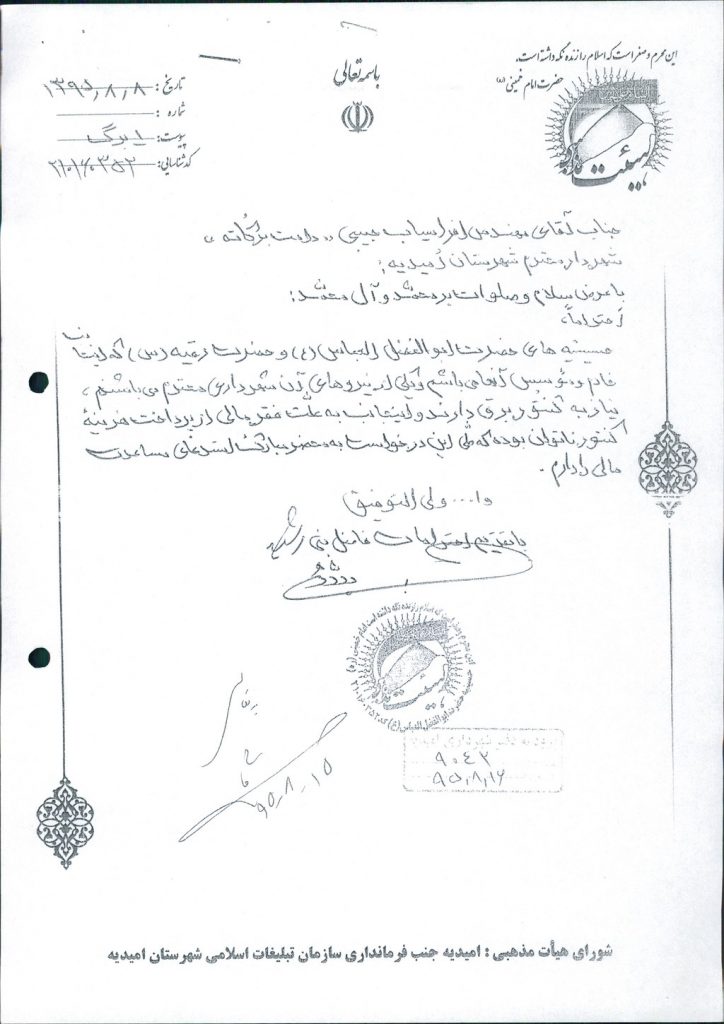 این محرم و صفر است که اسلام را زنده نگه داشته است.
حضرت امام خمینی (ره)
باسمه تعالی
تاریخ: ۱۳۹۵٫۸٫۸
شماره:
پیوست: ۱ برگ
کد شناسایی:
هیئت
جناب آقای مهندس افراسیاب حبیبی «دامت برکاته»
شهردار محترم شهرستان اُمیدیه؛
با عرض سلام و صلوات بر محمّد و آل محمّد:
احتراماً،
حسینیه های حضرت ابوالفضل العباس (ع) و حضرت رقیه (س) که اینجانب
خادم و مؤسس آنها می باشم و یکی از نیروهای آن شهرداری محترم می باشم،
نیاز به کنتور برق دارند و اینجانب به علت فقر مالی از پرداخت هزینهٔ
کنتور ناتوان بوده که طی این درخواست به محضر مبارک تقاضای مساعدت
مالی را دارم.
وا... ولی التوفیق
با تقدیم احترامات فاضل بنی رشید
این محرم و صفر است که اسلام را زنده نگه داشته است امام خمینی (ره)
هیئت
حسینیه حضرت ابوالفضل العباس (ع)
ورود به دفتر شهرداری امیدیه
۹۰۴۲
۹۵٫۸٫۱۶
۹۵٫۸٫۱۵
شورای هیأت مذهبی : امیدیه جنب فرمانداری سازمان تبلیغات اسلامی شهرستان امیدیه